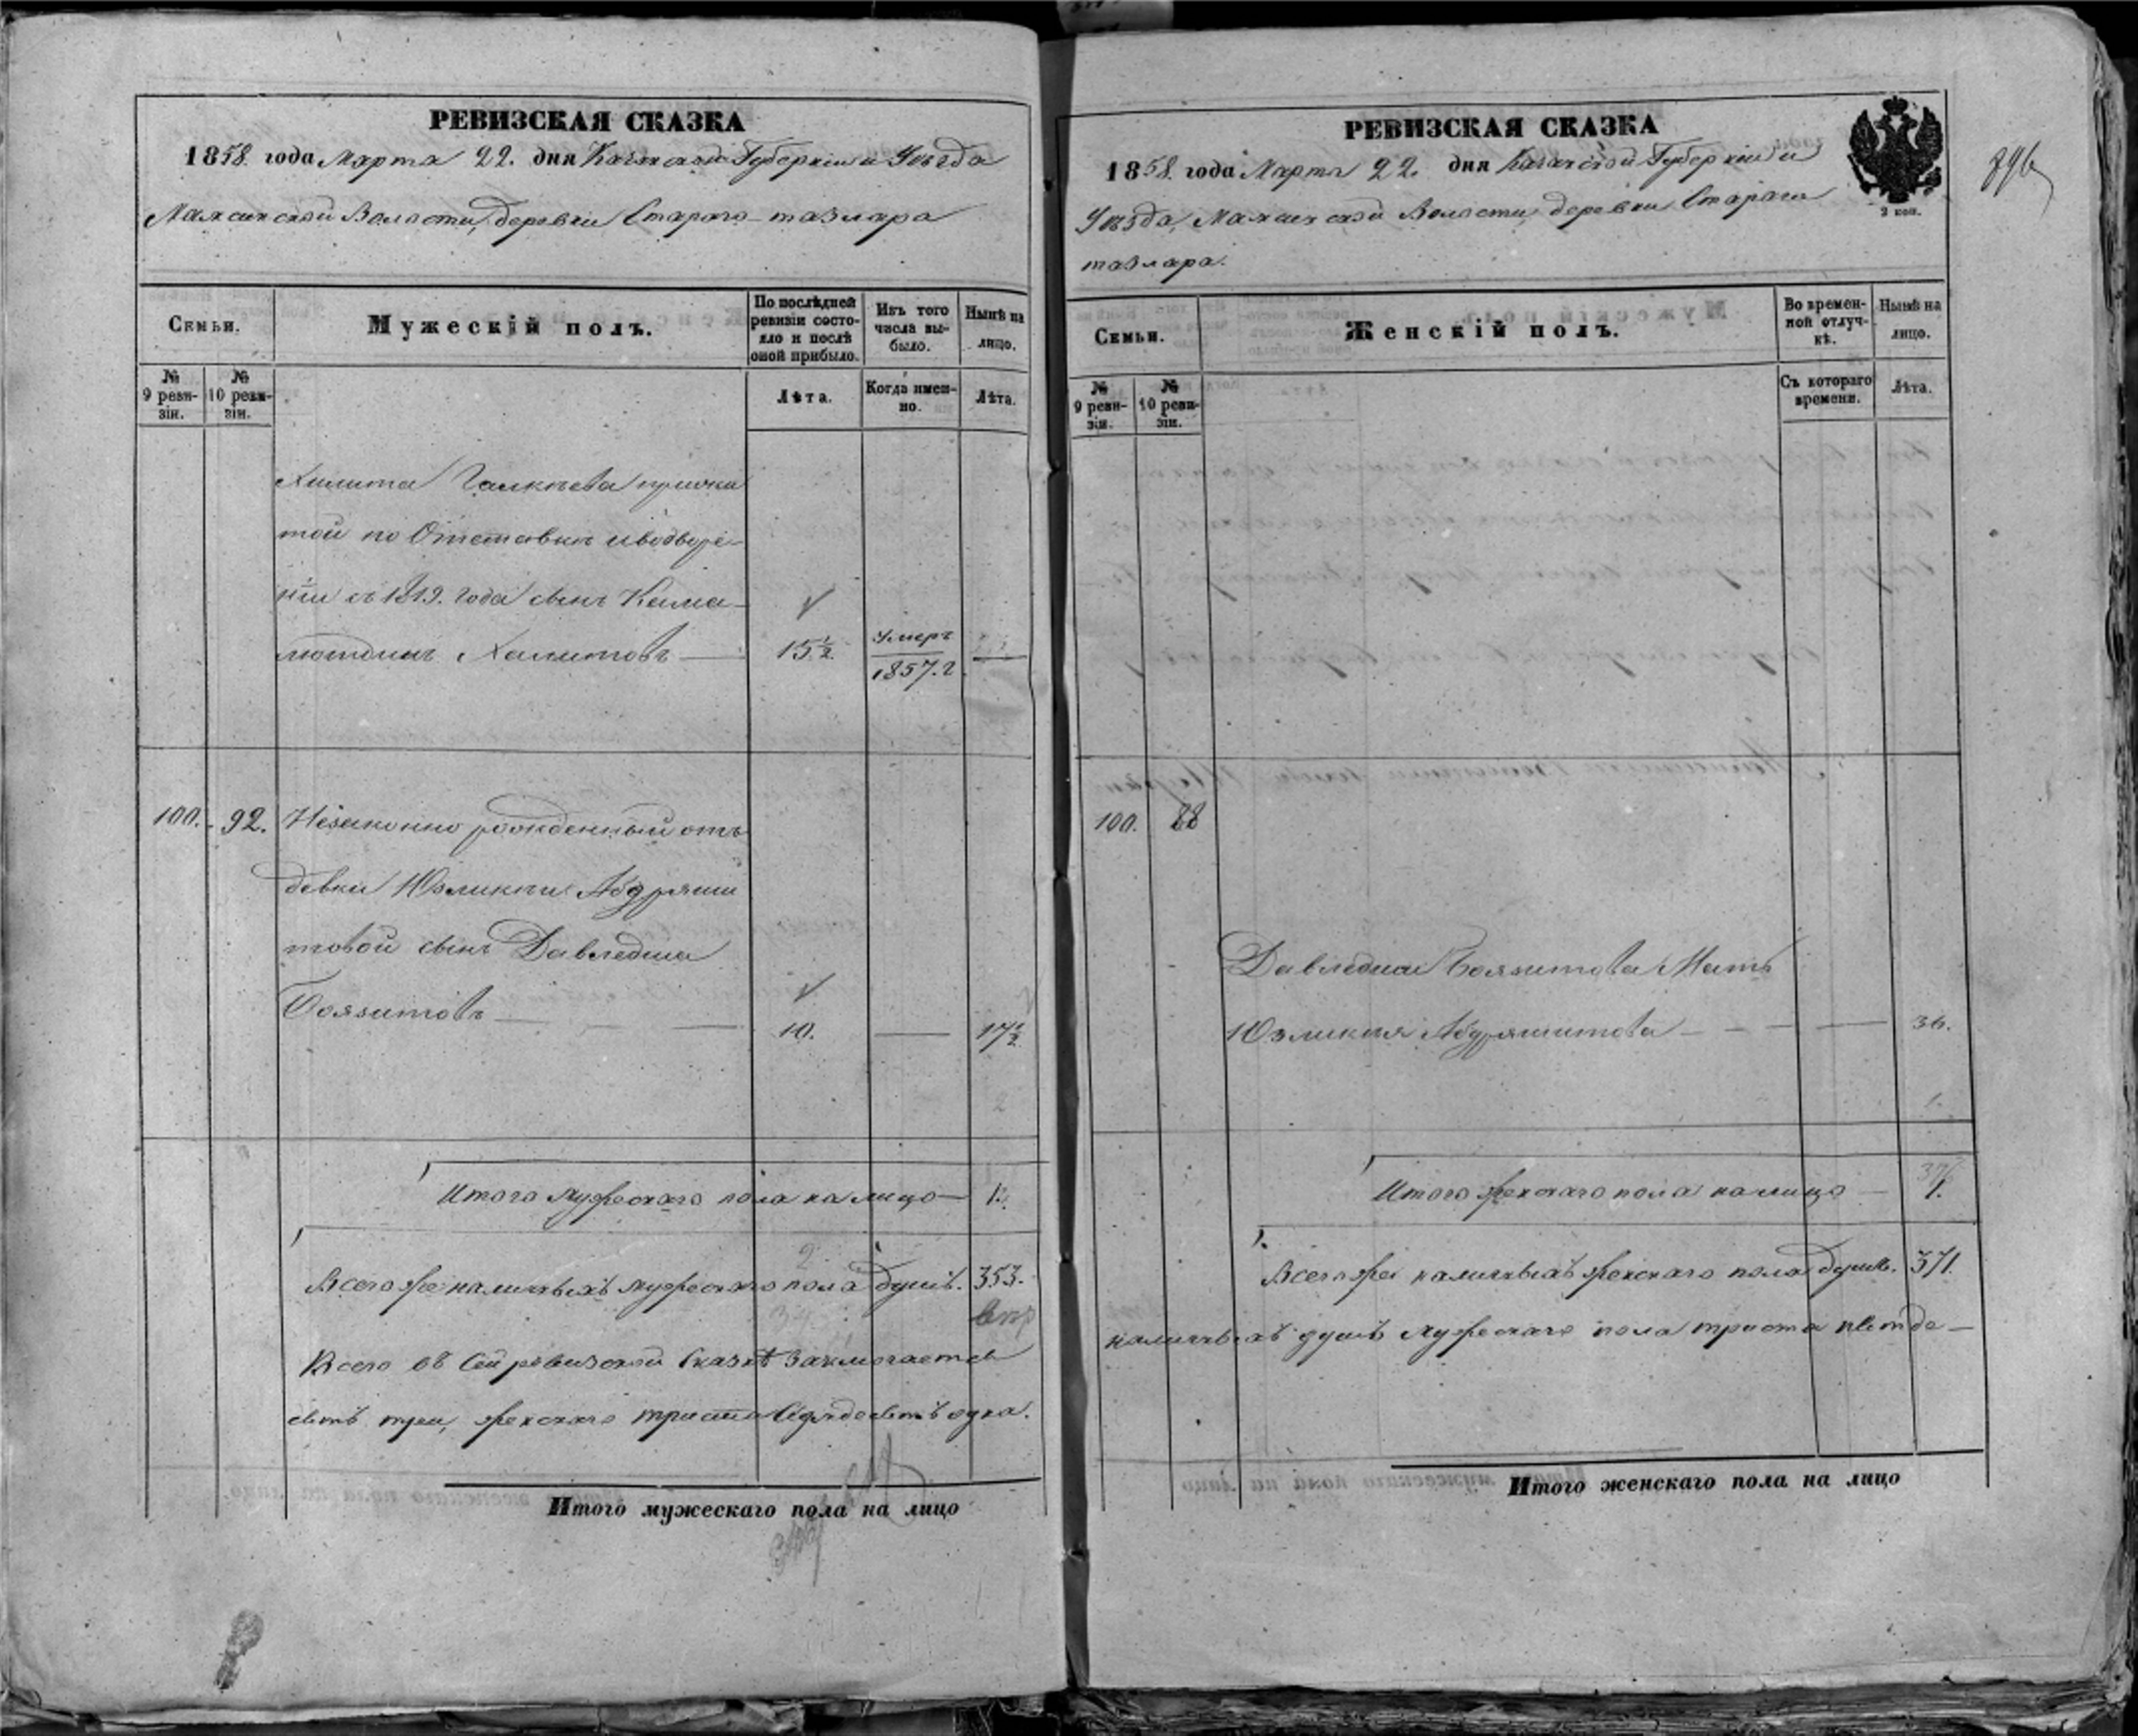 РЕВИЗСКАЯ СКАЗКА
1858. года Марта 22. дня Казанской Губерніи и Уѣзда
Мамсинской Волости, деревни Стараго-тазлара
Семьи.
Мужескій полъ.
По послѣдней ревизіи состояло и послѣ оной прибыло.
Изъ того числа выбыло.
Нынѣ на лицо.
№ 9 ревизіи.
№ 10 ревизіи.
Лѣта.
Когда именно.
Лѣта.
той по Отставкѣ и водворе-
ніи съ 1819. года сынъ Кама-
лютдинъ Халитовъ — 15½ Умеръ 1857. г —
100. 92. Незаконно рожденный отъ
девки Юзликеи Абдряши
товой сынъ Давледша
Боязитовъ — 10. — 17½
Итого мужескаго пола на лицо — 1.
Всего же наличныхъ мужескаго пола душъ. 353.
Всего въ сей ревизской сказкѣ заключается
сятъ три, женскаго триста семьдесятъ одна.
Итого мужескаго пола на лицо
РЕВИЗСКАЯ СКАЗКА
2 коп.
1858. года Марта 22. дня Казанской Губерніи и
Уѣзда, Мамсинской Волости, деревни Стараго
тазлара.
Семьи.
Женскій полъ.
Во временной отлучкѣ.
Нынѣ на лицо.
№ 9 ревизіи.
№ 10 ревизіи.
Съ котораго времени.
Лѣта.
100. 88
Давледши Боязитова Мать
Юзликея Абдряшитова — — — 36.
1.
Итого женскаго пола на лицо — 1.
Всего же наличныхъ женскаго пола душъ. 371.
наличныхъ душъ мужескаго пола триста пятде-
Итого женскаго пола на лицо